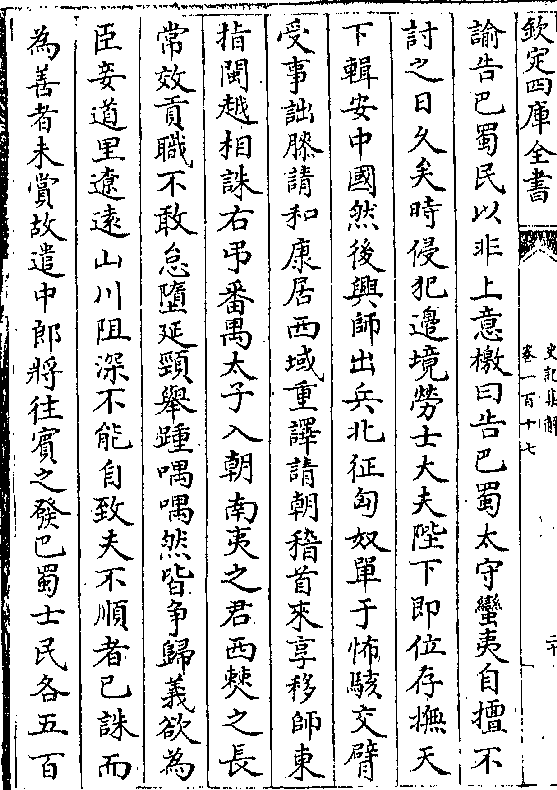 欽定四庫全書
史記集解
卷一百十七
二十
諭告巴蜀民以非上意檄曰告巴蜀太守蠻夷自擅不
討之日久矣時侵犯邊境勞士大夫陛下即位存撫天
下輯安中國然後興師出兵北征匈奴單于怖駭交臂
受事詘膝請和康居西域重譯請朝稽首來享移師東
指閩越相誅右弔番禺太子入朝南夷之君西僰之長
常效貢職不敢怠墮延頸舉踵喁喁然皆争歸義欲為
臣妾道里遼逺山川阻深不能自致夫不順者已誅而
為善者未賞故遣中郎將往賓之發巴蜀士民各五百